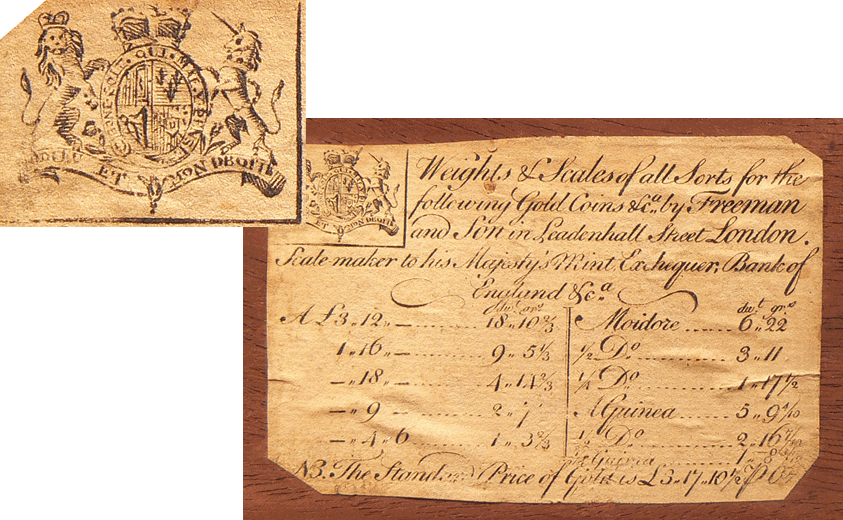 HONI SOIT QUI MAL Y PENSE
DIEU ET MON DROIT
Weights & Scales of all Sorts for the
following Gold Coins &c.a by Freeman
and Son in Leadenhall Street London.
Scale maker to his Majesty's Mint, Exchequer, Bank of
England &c.a
dwt grs
A £3 „ 12 „ — 18 „ 10 2/3
1 „ 16 „ — 9 „ 5 1/3
— „ 18 „ — 4 „ 14 2/3
— „ 9 2 „ 7
— „ 4 „ 6 1 „ 3 2/3
dwt grs
Moidore 6 „ 22
1/2 Do 3 „ 11
1/4 Do 1 „ 17 1/2
A Guinea 5 „ 9 4/10
1/2 Do 2 „ 16 7/10
Guinea 1 „ 8
NB. The Standard Price of Gold is £3 „ 17 „ 10 1/2 P Oz